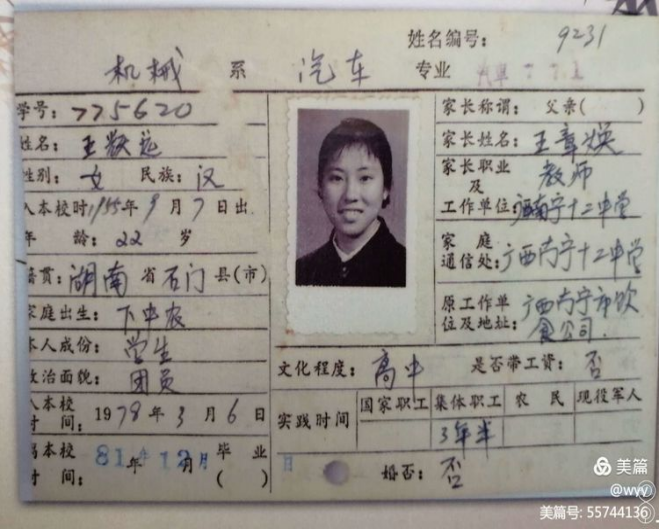 姓名编号: 9231
机械 系 汽车 专业
学号: 775620
姓名: 王
性别: 女 民族: 汉
入本校时1955年9月7日出
年龄: 22岁
籍贯: 湖南省石门县(市)
家庭出生: 下中农
本人成份: 学生
政治面貌: 团员
入本校时间: 1978年3月6日
离本校时间: 81年12月 毕业
家长称谓: 父亲( )
家长姓名: 王章焕
家长职业及工作单位: 教师 南宁十二中学
家庭通信处: 广西南宁十二中学
原工作单位及地址: 广西南宁市饮食公司.
文化程度: 高中 是否带工资: 否
实践时间 国家职工 集体职工 农民 现役军人
3年半
婚否: 否
美篇
@wyy
美篇号: 55744136